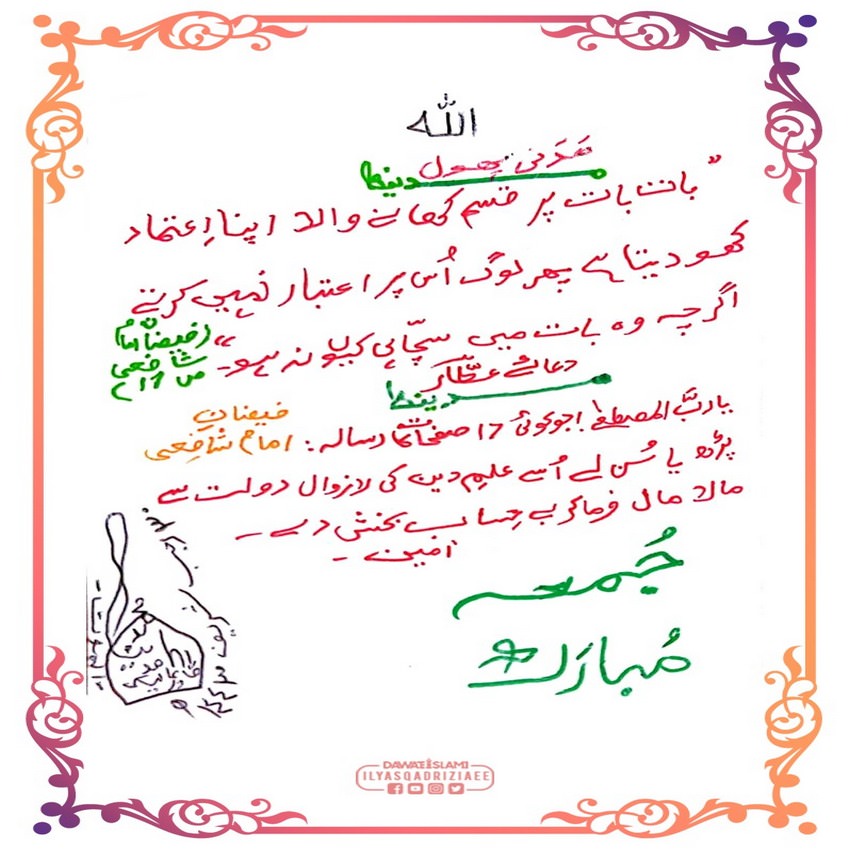 الله
مَدَنی پھول
”بات بات پر قسم کھانے والا اپنا اِعتماد
کھو دیتا ہے پھر لوگ اُس پر اعتبار نہیں کرتے
اگرچہ وہ بات میں سچّا ہی کیوں نہ ہو۔“ (فیضانِ امام شافعی ص 17)
دعائے عطّار
یاربَّ المصطفےٰ! جو کوئی 17 صفحات کا رسالہ: فیضانِ امام شافعی
پڑھ یا سُن لے اُسے علمِ دین کی لازوال دولت سے
مالا مال فرما کر بے حِساب بخش دے۔
اٰمین۔
جُمعہ
مُبارَک
DAWATEISLAMI
ILYASQADRIZIAEE